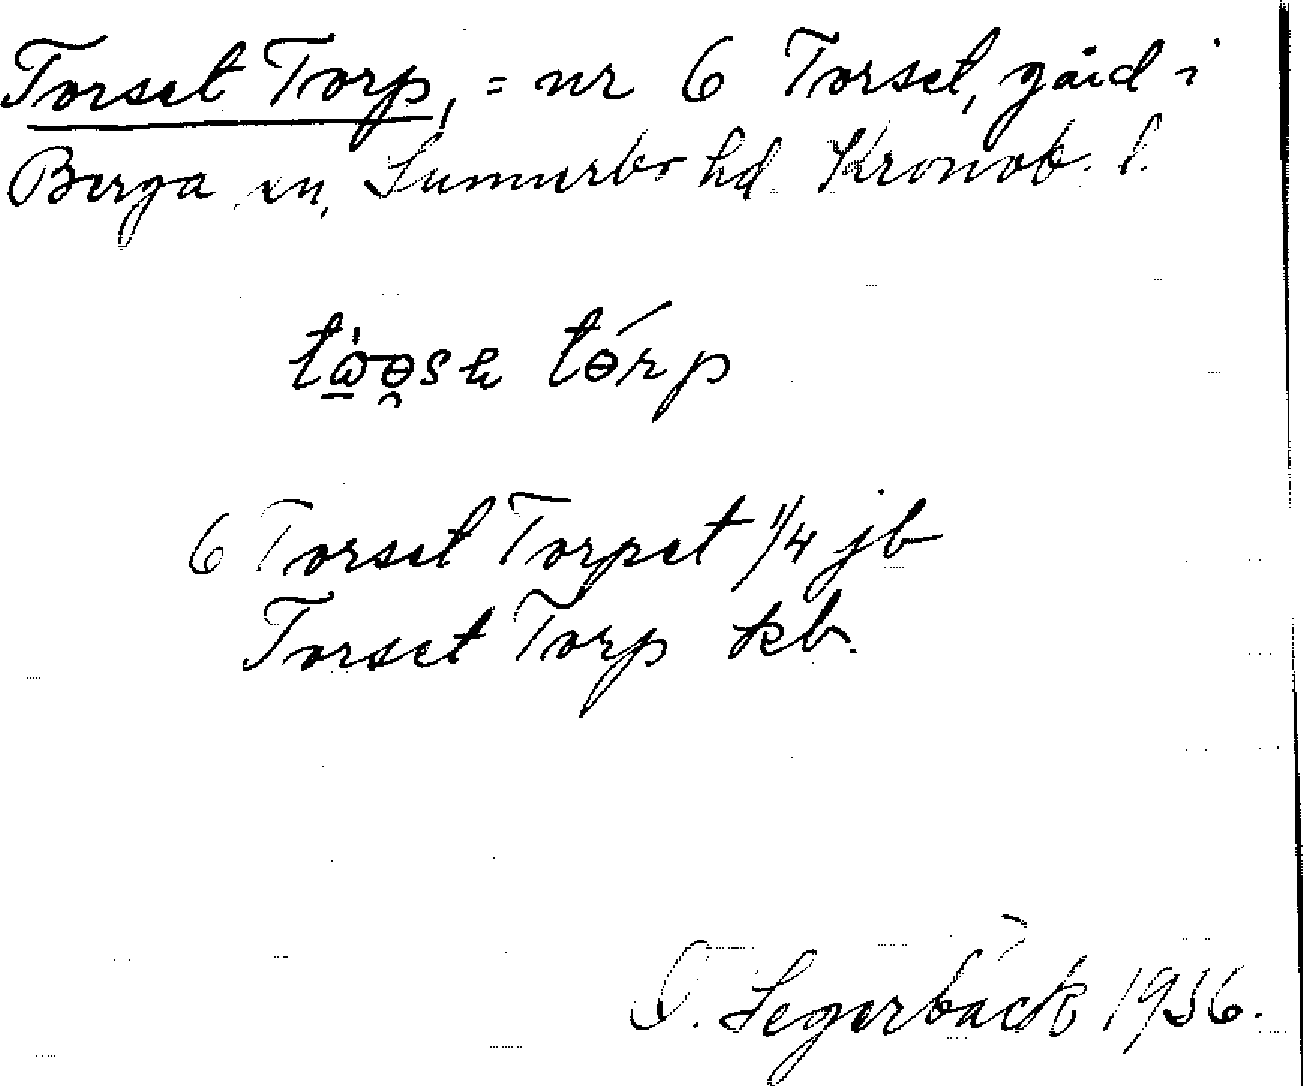 Torset Torp, = nr 6 Torset, gård i
Berga sn, Sunnerbo hd. Kronob. l.
tórp
6 Torset Torpet 1/4 jb
Torset Torp kb.
Segerbäck 1936.